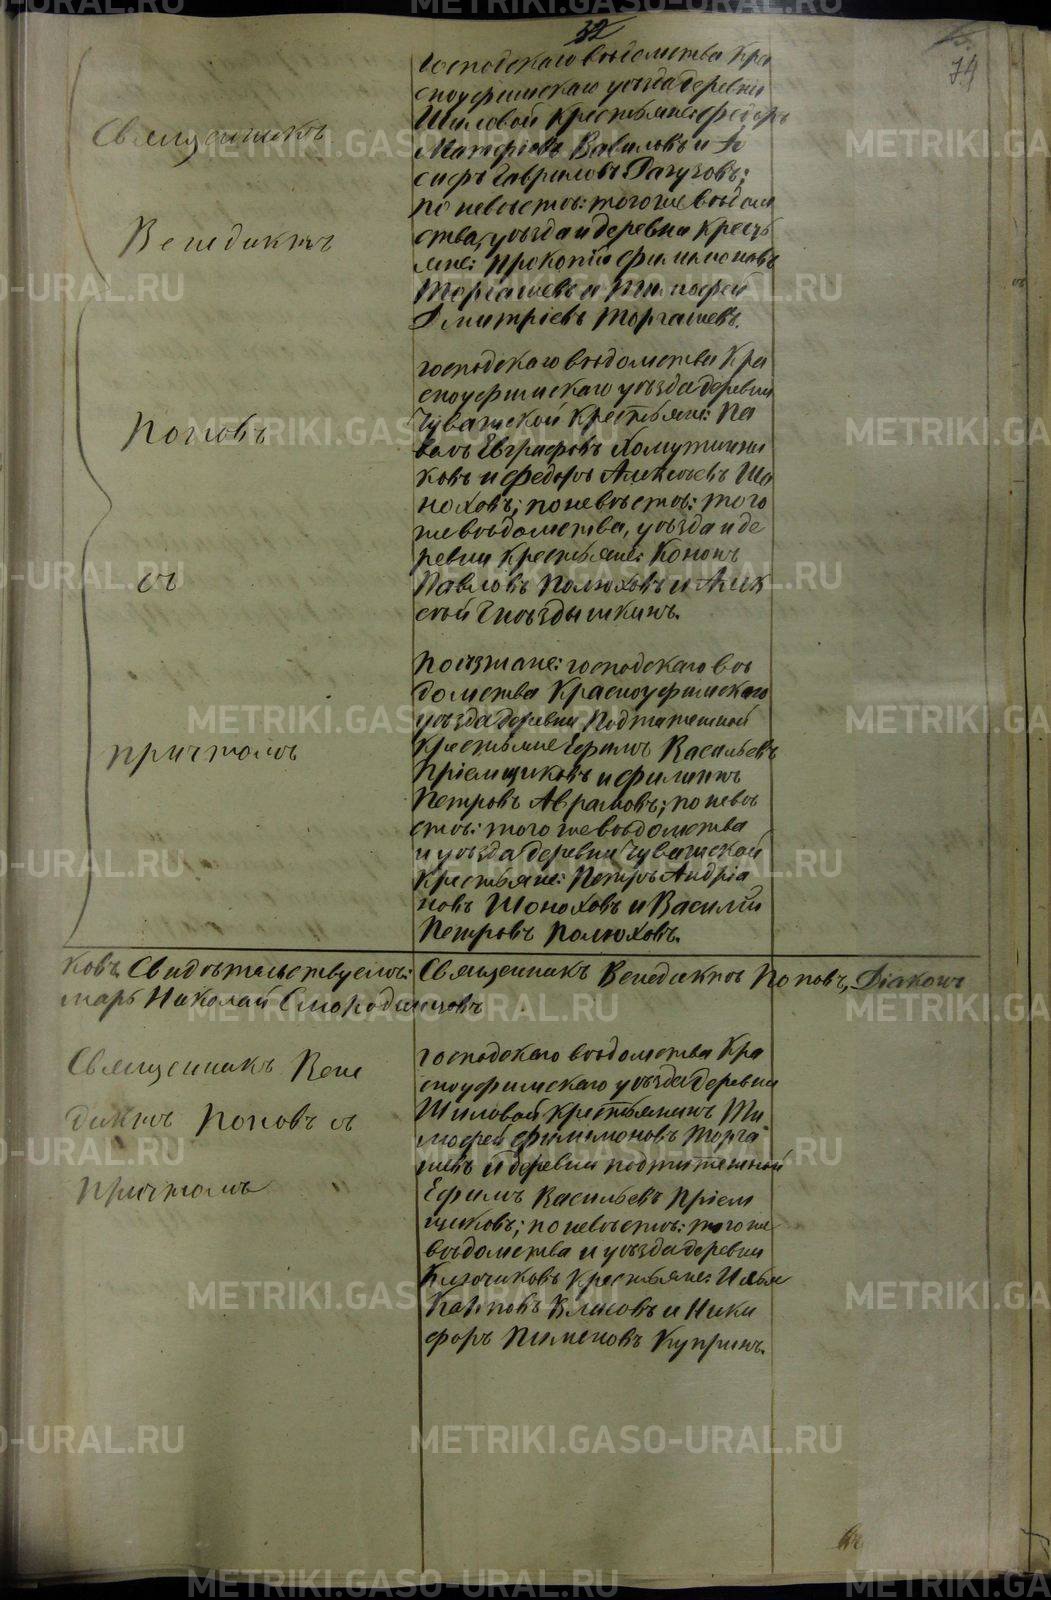 32
74
Священникъ
Венедиктъ
Поповъ
съ
причтомъ
господскаго вѣдомства Кра
сноуфимскаго уѣзда деревни
Шиловой крестьяне: Федоръ
Матфеевъ Вавиловъ и Іо
сифъ Гавриловъ Рагузовъ;
по невѣстѣ: того же вѣдом
ства, уѣзда и деревни крестья
не: Прокопій Филимоновъ
Торгашевъ и Тимофей
Дмитріевъ Торгашевъ.
господскаго вѣдомства Кра
сноуфимскаго уѣзда деревни
Чувашской крестьяне: Па
велъ Евграфовъ Хомутинни
ковъ и Федоръ Алексѣевъ Шо
ноховъ; по невѣстѣ: того
же вѣдомства, уѣзда и де
ревни крестьяне: Кононъ
Павловъ Полюховъ и Алек
сѣй Гнѣздышкинъ.
Поезжане: господскаго вѣ
домства Красноуфимскаго
уѣзда деревни Подтатешной
крестьяне Ефимъ Васильевъ
Пріемщиковъ и Филиппъ
Петровъ Аврамовъ; по невѣ
стѣ: того же вѣдомства
и уѣзда деревни Чувашской
крестьяне: Петръ Андріа
новъ Шоноховъ и Василій
Петровъ Полюховъ.
ковъ Свидѣтельствуемъ: Священникъ Венедиктъ Поповъ, Діаконъ
марь Николай Смородинцовъ
Священникъ Вене
диктъ Поповъ съ
причтомъ
господскаго вѣдомства Кра
сноуфимскаго уѣзда деревни
Шиловой крестьянинъ Ти
мофей Филимоновъ Торга
шевъ и деревни Подтатешной
Ефимъ Васильевъ Пріем
щиковъ; по невѣстѣ: того же
вѣдомства и уѣзда деревни
Ключиковъ крестьяне: Илья
Карповъ и Ники
форъ Пименовъ Купринъ.
METRIKI.GASO-URAL.RU